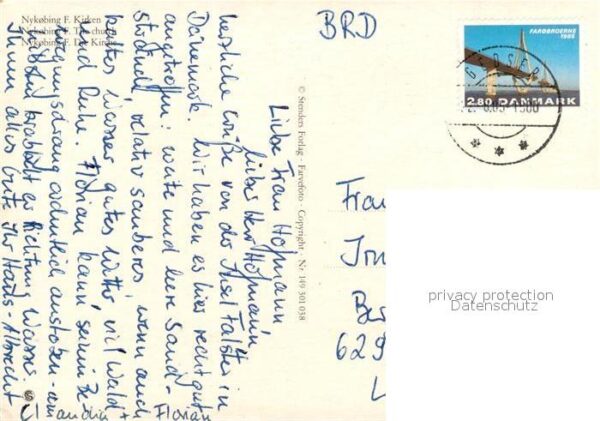 Nykøbing F. Kirken
Nykøbing F. The church
Nykøbing F. Die Kirche
BRD
FARØBROERNE
1985
2.80 DANMARK
1500
© Stenders Forlag - Farvefoto - Copyright - Nr 149 301 038
Liebe Frau Hofmann
lieber Herr Hofmann,
herzliche Grüße von der Insel Falster in
Dänemark. Wir haben es hier recht gut
angetroffen: weite und leere Sand-
strände, relativ sauberes, wenn auch
kaltes Wasser, gutes Wetter, viel Wald
und Ruhe. Florian kann seinen Be-
wegungsdrang ordentlich austoben - am
liebsten krabbelt er Richtung Wasser.
Ihnen alles Gute Ihr Hans-Albrecht
Claudia + Florian
Frau
Ber
629
privacy protection
Datenschutz